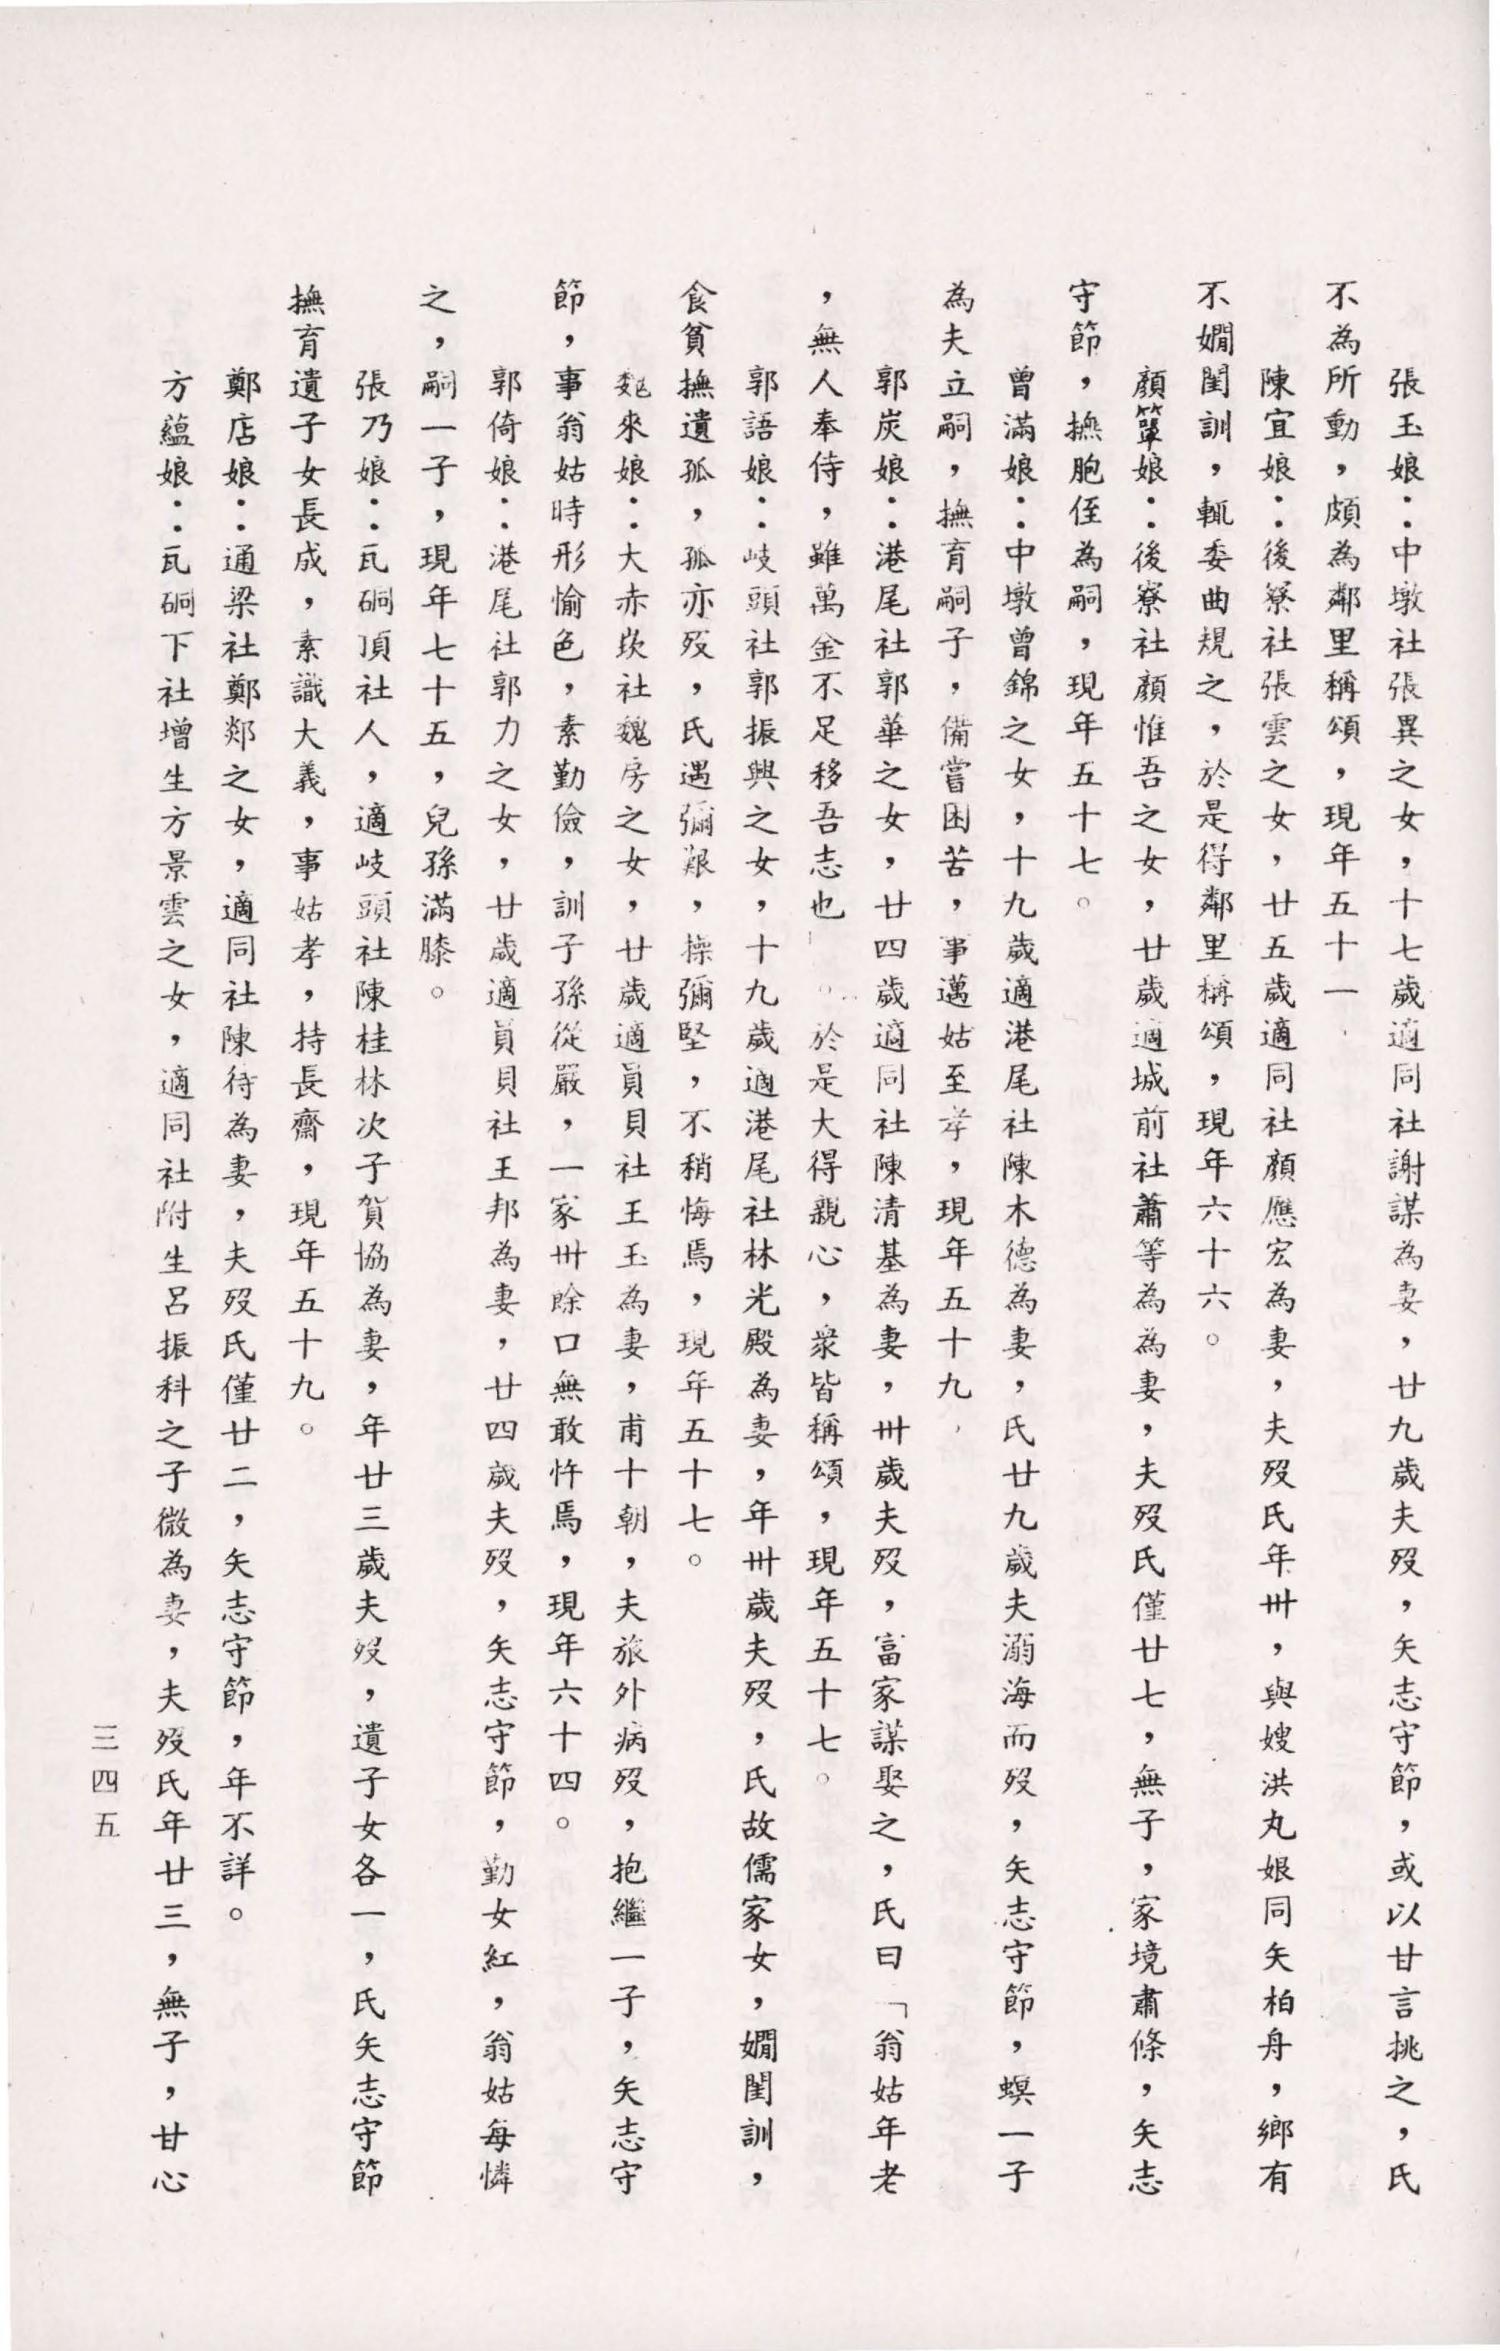 張玉娘：中墩社張異之女，十七歲適同社謝謀為妻，廿九歲夫歿，矢志守節，或以甘言挑之，氏
不為所動，頗為鄰里稱頌，現年五十一
陳宜娘：後寮社張雲之女，廿五歲適同社顏應宏為妻，夫歿氏年卅，與嫂洪丸娘同矢柏舟，鄉有
不嫺閨訓，輒委曲規之，於是得鄰里稱頌，現年六十六。
顏簞娘：後寮社顏惟吾之女，廿歲適城前社蕭等為為妻，夫歿氏僅廿七，無子，家境肅條，矢志
守節，撫胞侄為嗣，現年五十七。
曾滿娘：中墩曾錦之女，十九歲適港尾社陳木德為妻，氏廿九歲夫溺海而歿，矢志守節，螟一子
為夫立嗣，撫育嗣子，備嘗困苦，事邁姑至孝，現年五十九，
郭炭娘：港尾社郭華之女，廿四歲適同社陳清基為妻，卅歲夫歿，富家謀娶之，氏曰「翁姑年老
，無人奉侍，雖萬金不足移吾志也。於是大得親心，衆皆稱頌，現年五十七。
郭語娘：岐頭社郭振興之女，十九歲適港尾社林光殿為妻，年卅歲夫歿，氏故儒家女，嫺閨訓，
食貧撫遺孤，孤亦歿，氏遇彌艱，操彌堅，不稍悔焉，現年五十七。
魏來娘：大赤崁社魏房之女，廿歲適員貝社王玉為妻，甫十朝，夫旅外病歿，抱繼一子，矢志守
節，事翁姑時形愉色，素勤儉，訓子孫從嚴，一家卅餘口無敢忤焉，現年六十四。
郭倚娘：港尾社郭力之女，廿歲適員貝社王邦為妻，廿四歲夫歿，矢志守節，勤女紅，翁姑每憐
之，嗣一子，現年七十五，兒孫滿膝。
張乃娘：瓦硐頂社人，適岐頭社陳桂林次子賀協為妻，年廿三歲夫歿，遺子女各一，氏矢志守節
撫育遺子女長成，素識大義，事姑孝，持長齋，現年五十九。
鄭店娘：通梁社鄭郯之女，適同社陳待為妻，夫歿氏僅廿二，矢志守節，年不詳。
方蘊娘：瓦硐下社增生方景雲之女，適同社附生呂振科之子微為妻，夫歿氏年廿三，無子，甘心
三四五